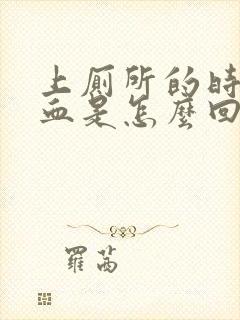 上厕所的時
血是怎麼回
羅茜